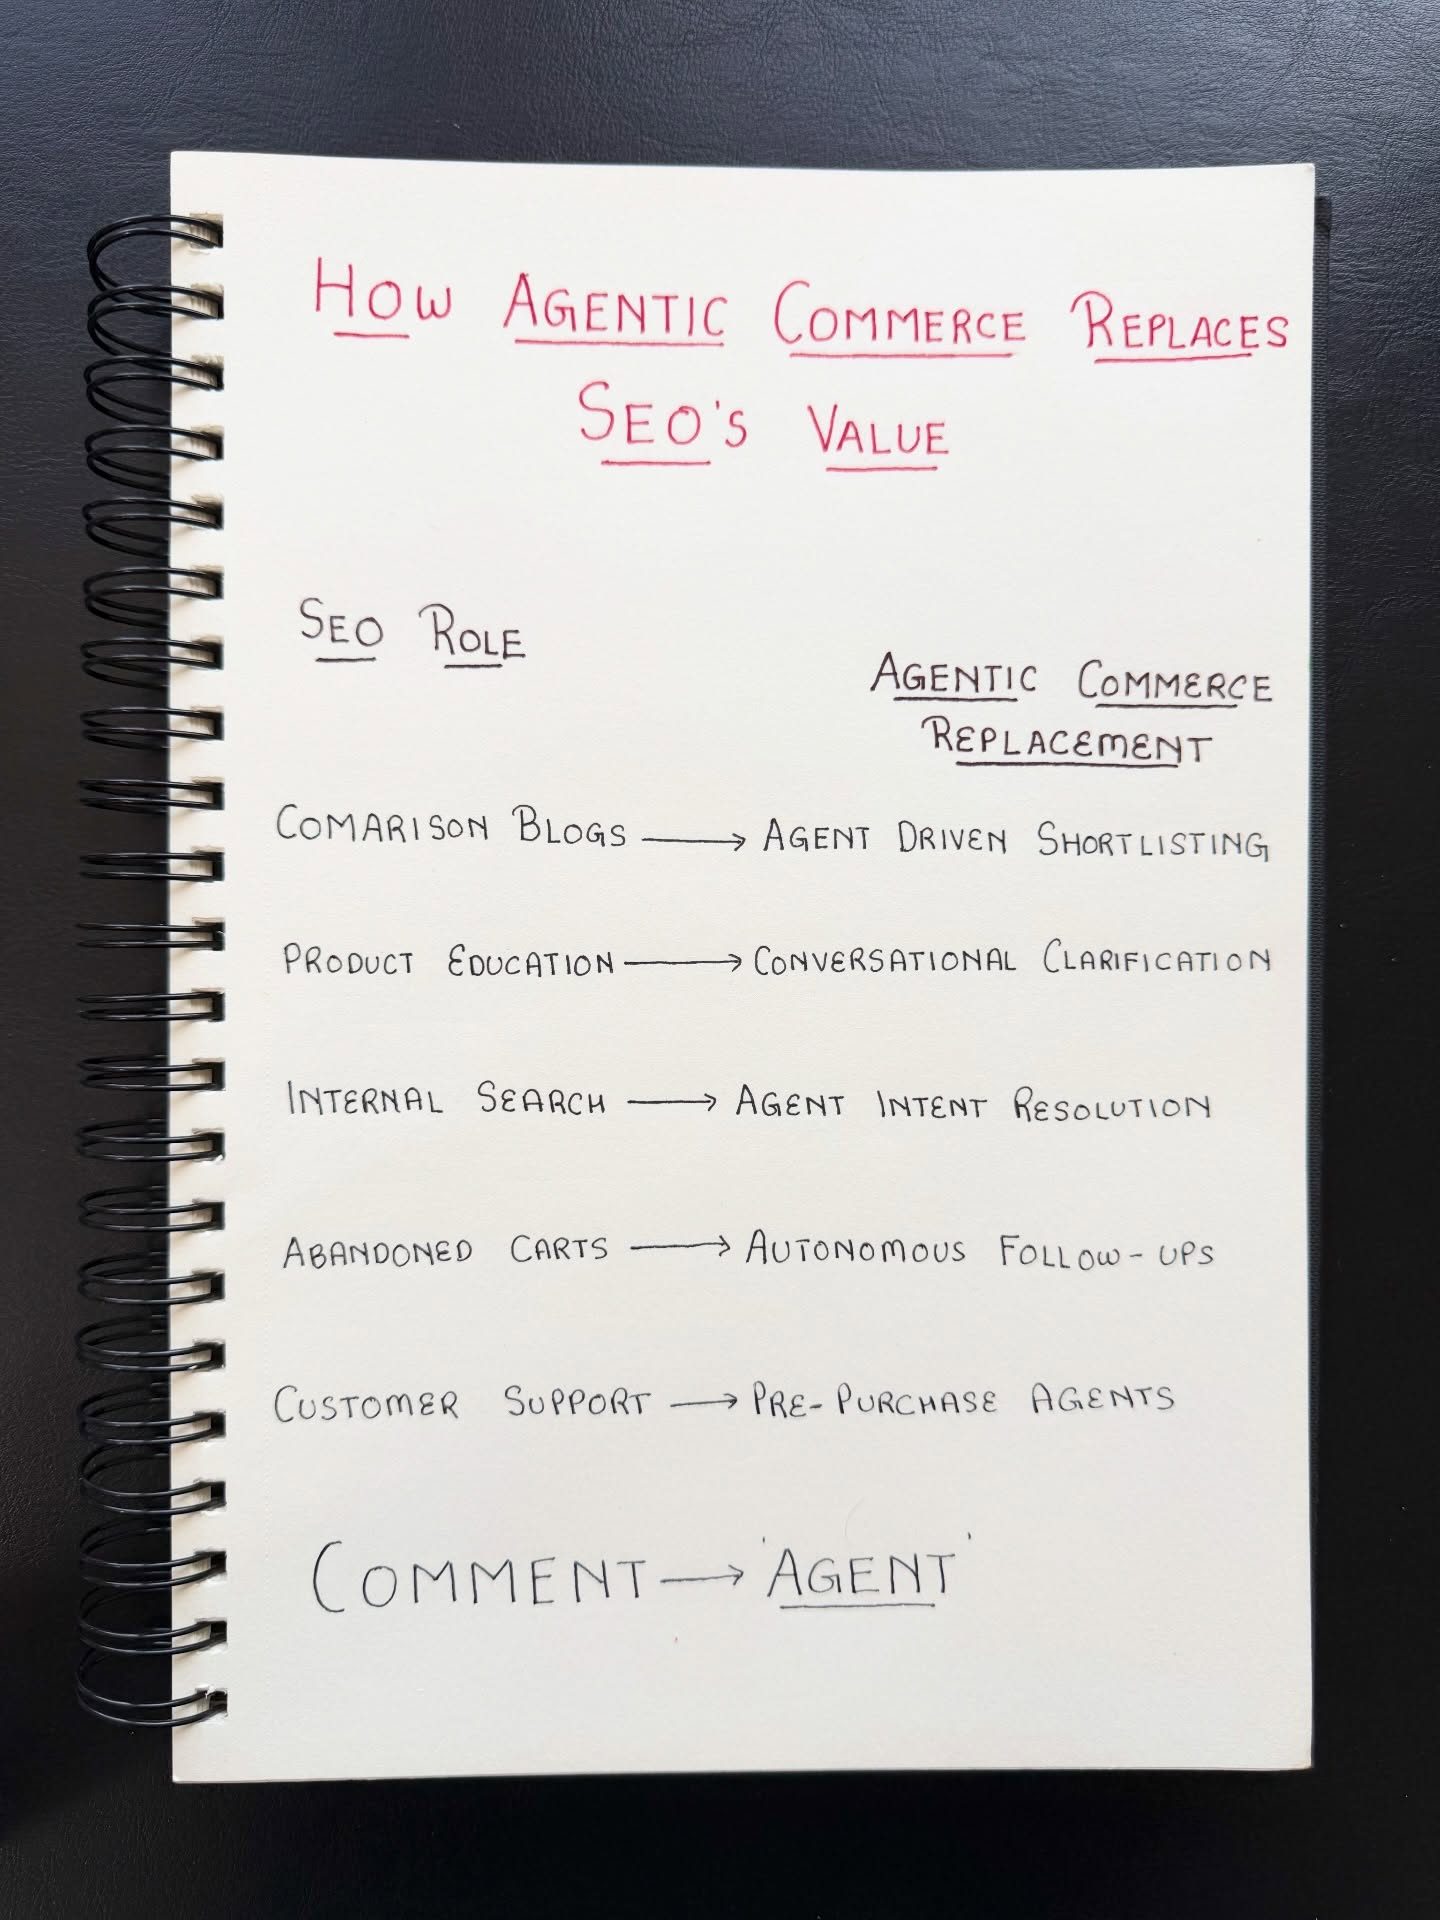 HOW AGENTIC COMMERCE REPLACES
SEO'S VALUE
SEO ROLE
AGENTIC COMMERCE
REPLACEMENT
COMARISON BLOGS → AGENT DRIVEN SHORTLISTING
PRODUCT EDUCATION → CONVERSATIONAL CLARIFICATION
INTERNAL SEARCH → AGENT INTENT RESOLUTION
ABANDONED CARTS → AUTONOMOUS FOLLOW-UPS
CUSTOMER SUPPORT → PRE-PURCHASE AGENTS
COMMENT → 'AGENT'